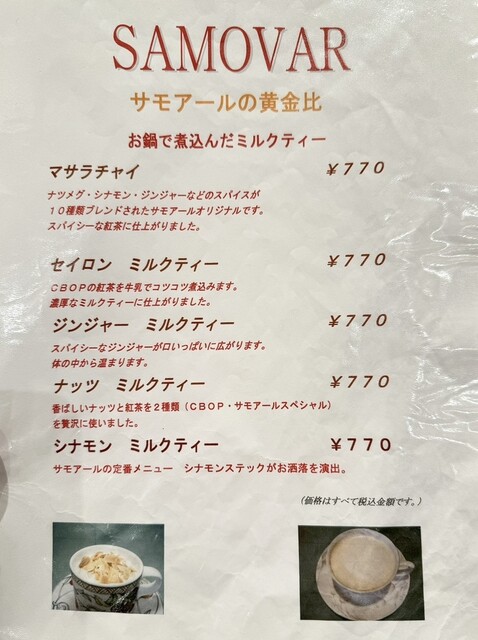 SAMOVAR
サモアールの黄金比
お鍋で煮込んだミルクティー
マサラチャイ ￥770
ナツメグ・シナモン・ジンジャーなどのスパイスが
10種類ブレンドされたサモアールオリジナルです。
スパイシーな紅茶に仕上がりました。
セイロン ミルクティー ￥770
CBOPの紅茶を牛乳でコツコツ煮込みます。
濃厚なミルクティーに仕上がりました。
ジンジャー ミルクティー ￥770
スパイシーなジンジャーが口いっぱいに広がります。
体の中から温まります。
ナッツ ミルクティー ￥770
香ばしいナッツと紅茶を2種類（CBOP・サモアールスペシャル）
を贅沢に使いました。
シナモン ミルクティー ￥770
サモアールの定番メニュー シナモンステックがお洒落を演出。
（価格はすべて税込金額です。）